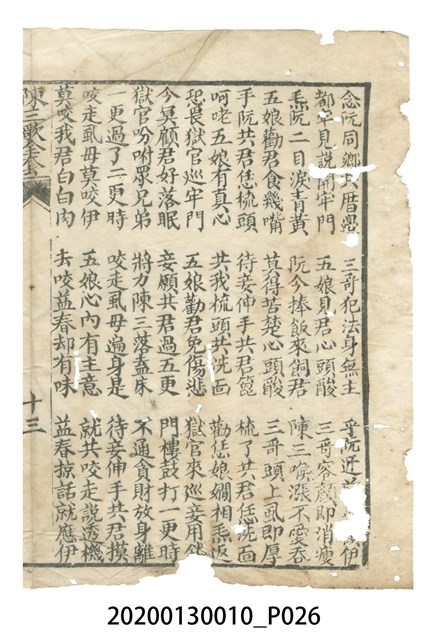 念阮同鄉共厝 三哥犯法身無主 阮近 伊
都 見説開牢門 五娘見君心頭酸 三哥容顔即消瘦
毛阮二目淚青黃 阮今捧飯來飼君 陳三喉漲不愛吞
五娘勸君食幾嘴 莫得苦楚心頭酸 三哥頭上虱即厚
手阮共君恁梳頭 待妾伸手共君篦 梳了共君恁洗面
呵咾五娘有真心 共我梳頭共洗面 勸恁娘嫺相毛返
恐畏獄官巡牢門 五娘勸君免傷悲 獄官來巡妾用
今冥顧君好落眠 妾願共君過五更 門樓鼓打一更時
獄官吩咐眾兄弟 將力陳三落盖床 不通貪財放身離
一更過了二更時 咬走虱母遍身是 待妾伸手共君摸
咬走虱母莫咬伊 五娘心內有主意 就共咬走説透機
莫咬我君白白肉 去咬益春却有味 益春掠話就應伊
陳三歌全本 十三
20200130010_P026